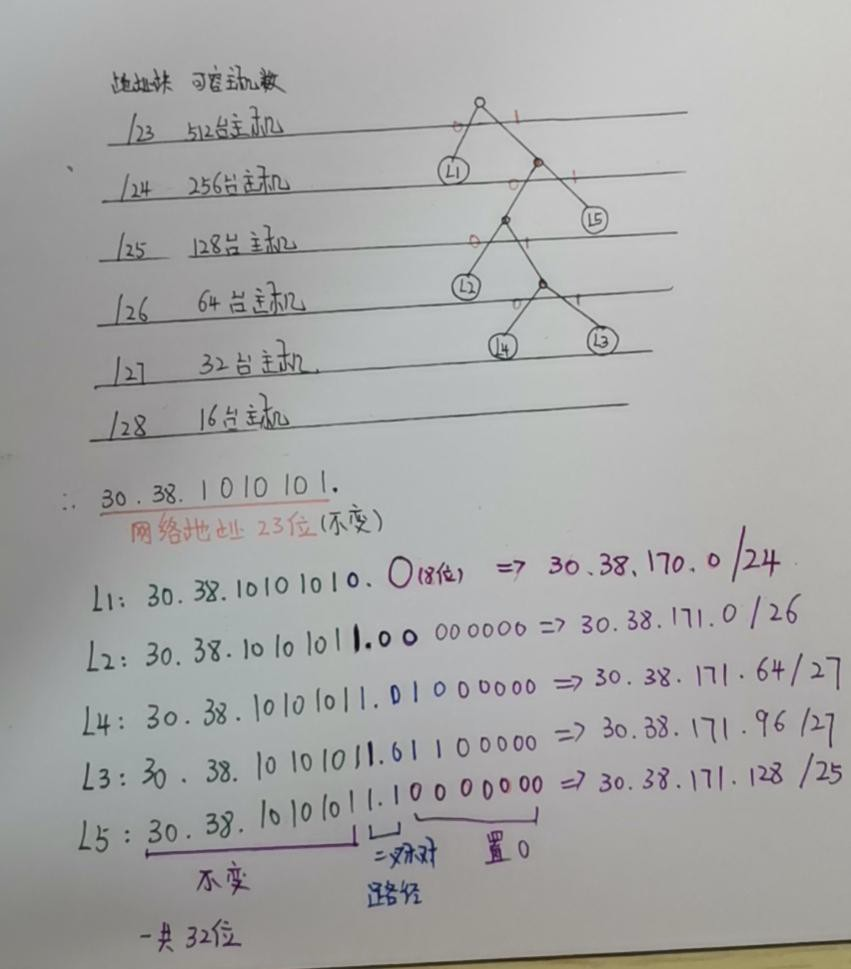 地址块 可容主机数
/23 512台主机
/24 256台主机
/25 128台主机
/26 64台主机
/27 32台主机
/28 16台主机
0 1
L1
0 1
L5
0 1
L2
0 1
L4 L3
∴ 30.38.1010101.
网络地址 23位(不变)
L1: 30.38.10101010.0(8位) => 30.38.170.0/24
L2: 30.38.10101011.00 000000 => 30.38.171.0/26
L4: 30.38.10101011.01000000 => 30.38.171.64/27
L3: 30.38.10101011.01100000 => 30.38.171.96/27
L5: 30.38.10101011.10000000 => 30.38.171.128/25
不变 二叉树 置0
路径
一共32位